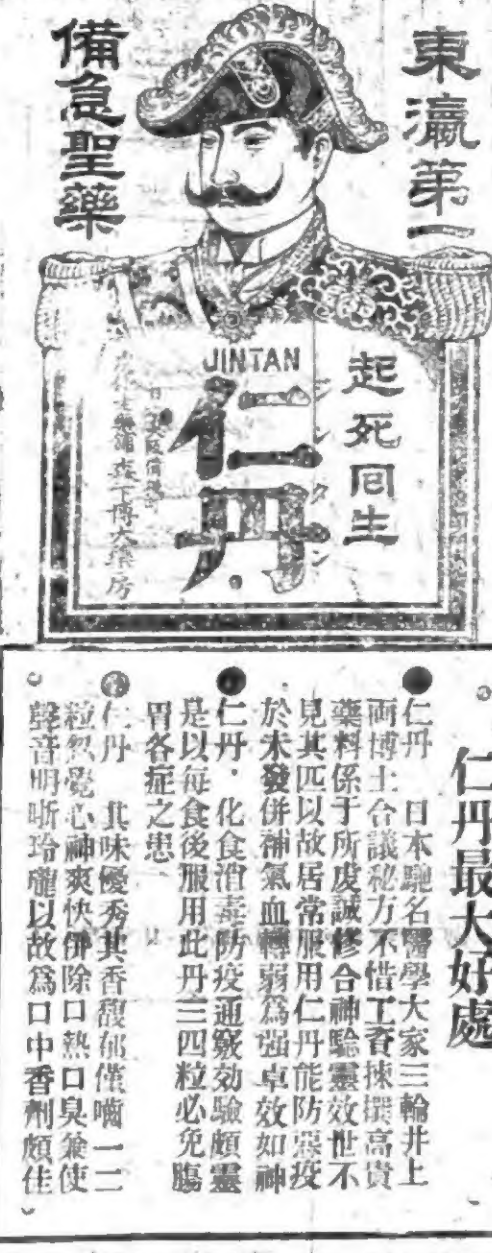 東瀛第一
備急聖藥
起死回生
JINTAN
仁丹
ジンタン
森下博大藥房
仁丹最大好處
●仁丹 日本馳名醫學大家三輪井上
両博士合議秘方不惜工資揀撰高貴
藥料係于所虔誠修合神驗靈效世不
見其匹以故居常服用仁丹能防惡疫
於未發併補氣血轉弱爲强卓效如神
●仁丹．化食消毒防疫通竅効驗頗靈
是以每食後服用此丹三四粒必免腸
胃各症之患
●仁丹 其味優秀其香馥郁僅嚙一二
粒忽覺心神爽快併除口熱口臭兼使
聲音明晰玲瓏以故爲口中香劑頗佳